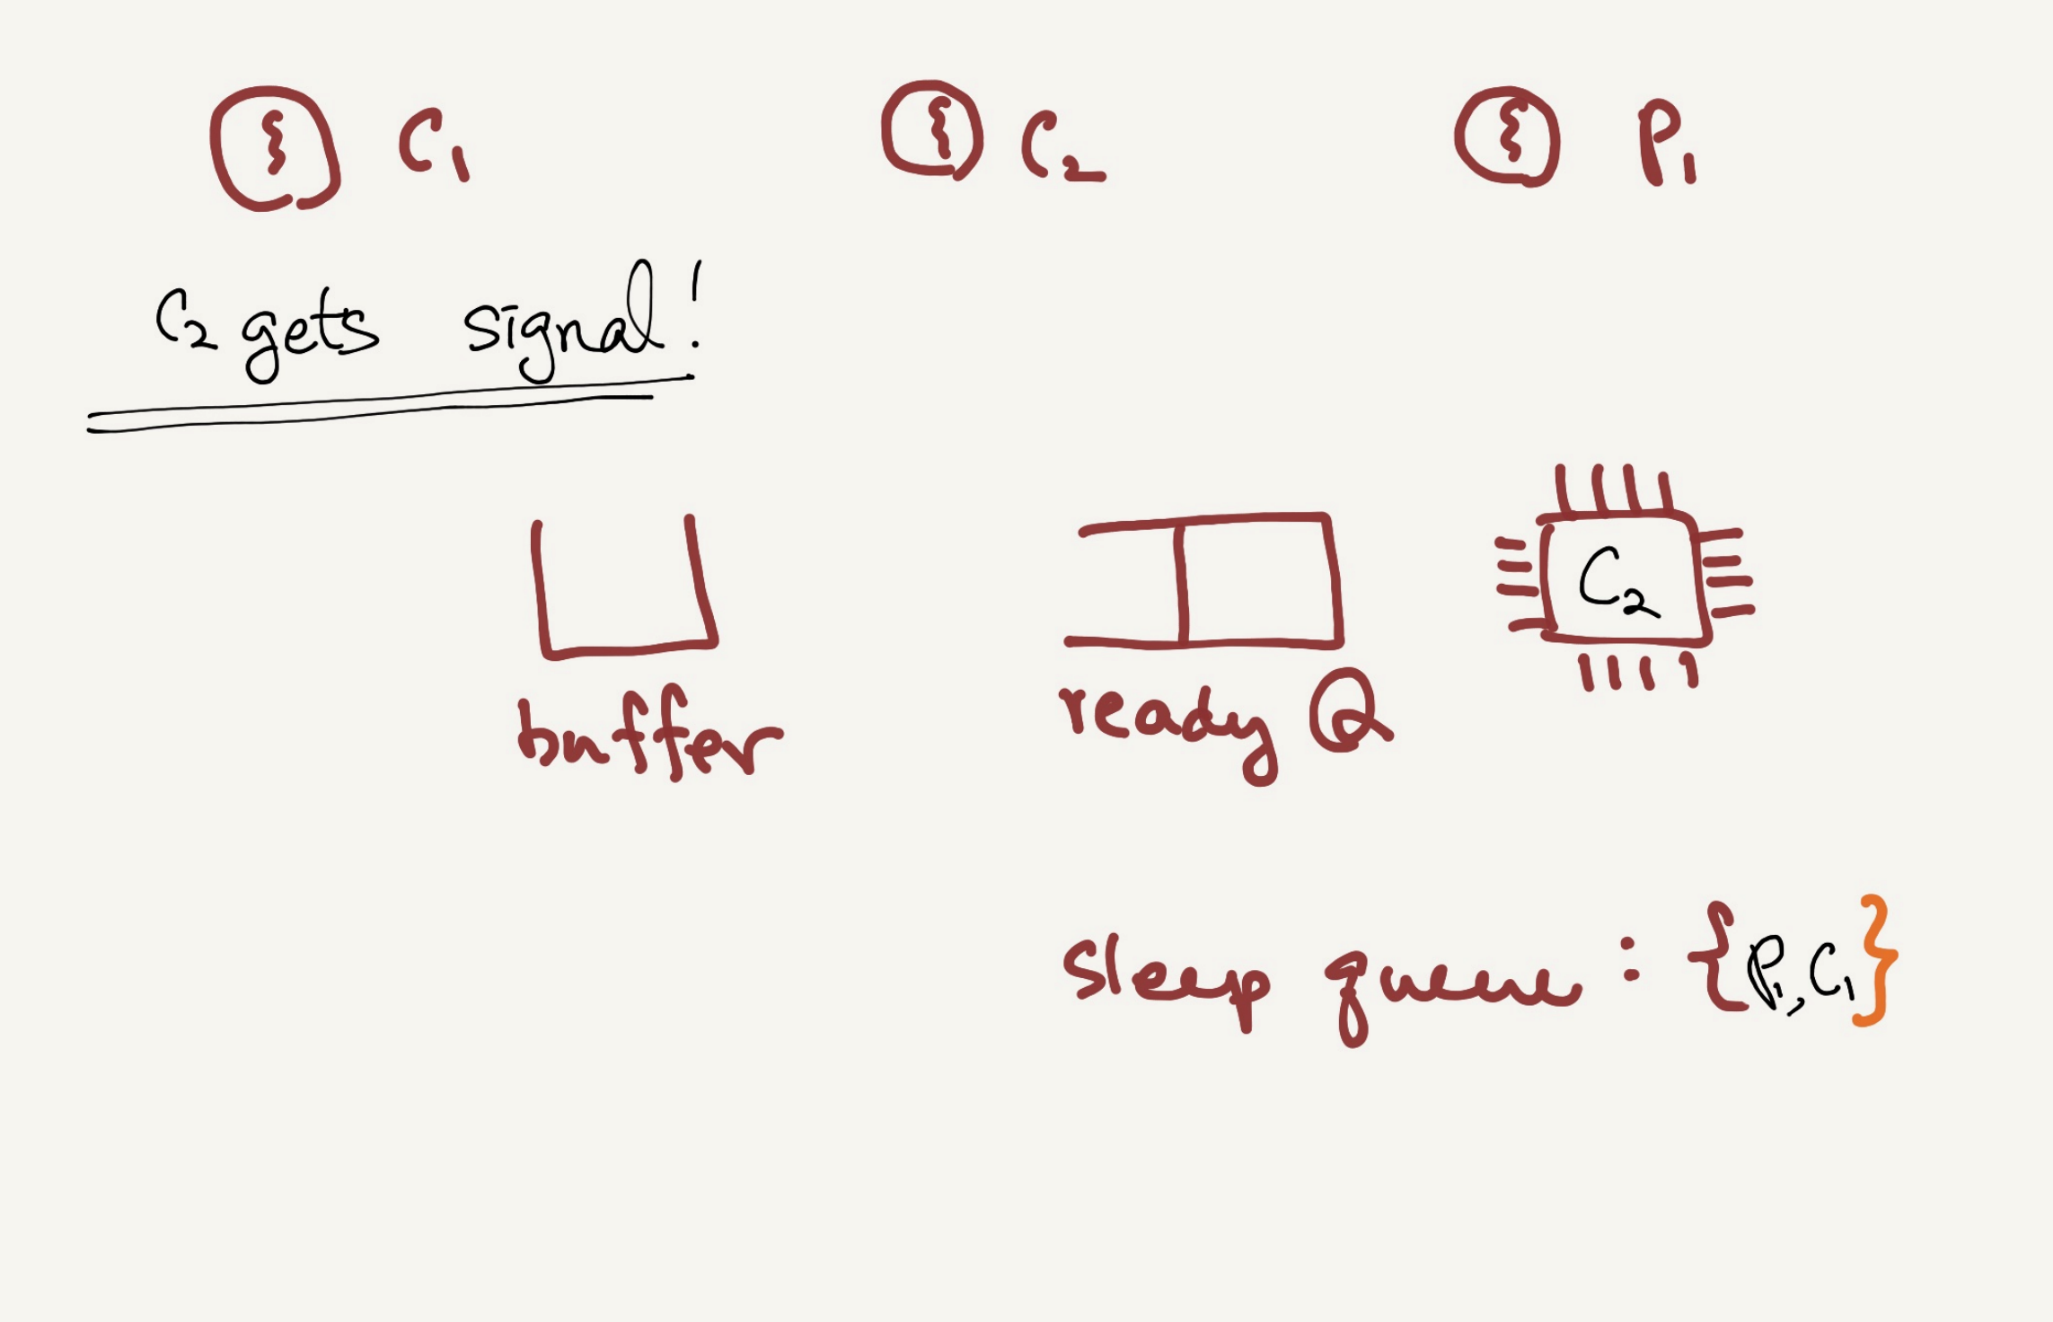 C₁ C₂ P₁
C₂ gets signal!
C₂
buffer ready Q
sleep queue : {P₁, C₁}